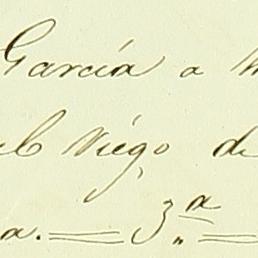 García a
Viego de
a. = 3.ª =